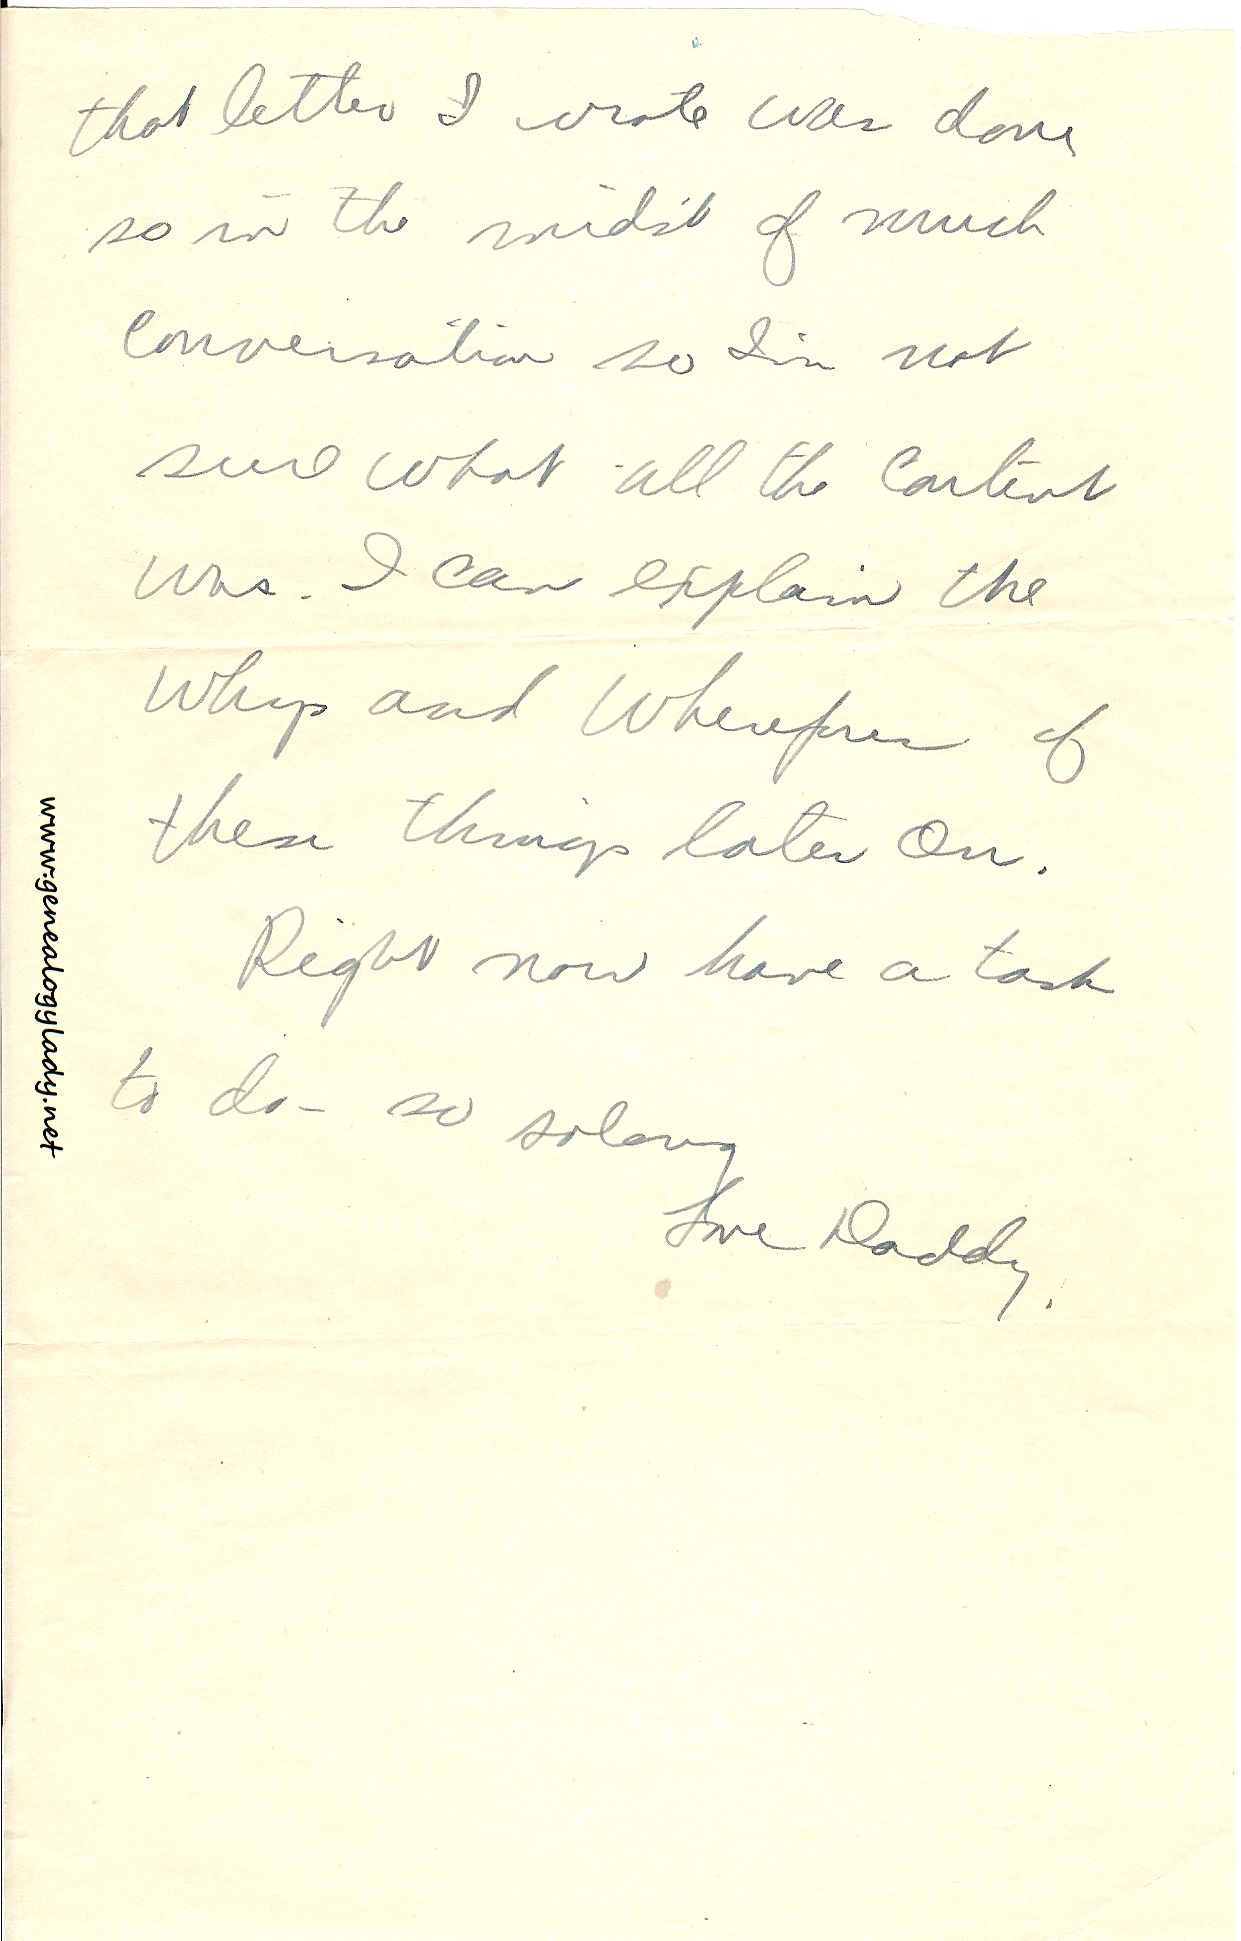 that letter I wrote was done
so in the midst of much
conversation so I'm not
sure what all the content
was. I can explain the
Whys and Wherefores of
these things later on.
Right now have a task
to do - so solong
Love Daddy.
www.genealogylady.net